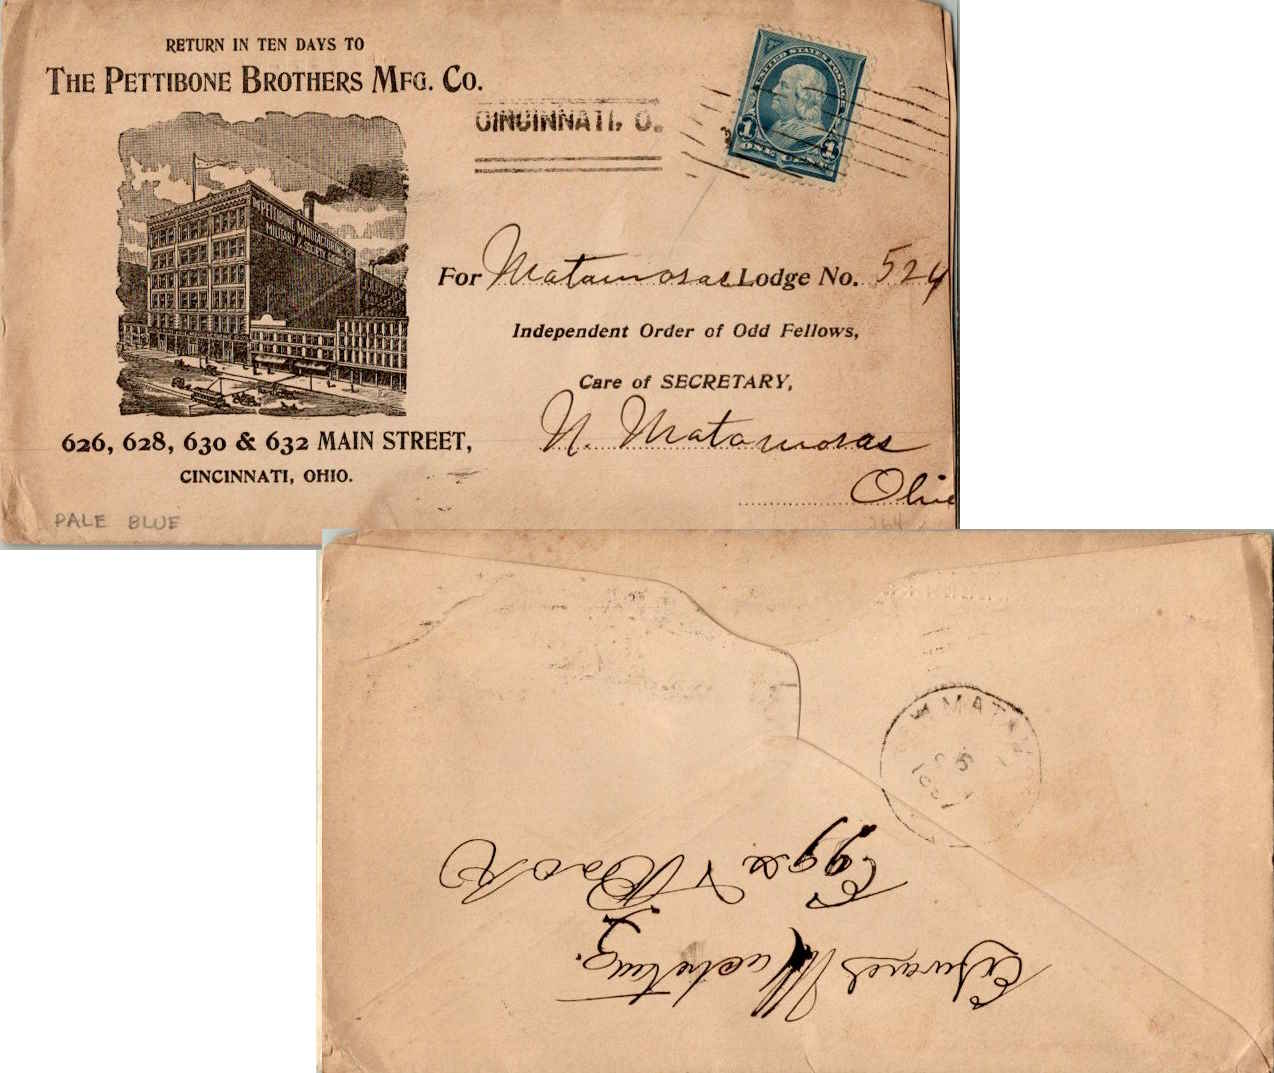 RETURN IN TEN DAYS TO
THE PETTIBONE BROTHERS MFG. CO.
THE PETTIBONE MANUFACTURING CO.
MILITARY & SOCIETY GOODS
626, 628, 630 & 632 MAIN STREET,
CINCINNATI, OHIO.
PALE BLUE
CINCINNATI, O.
UNITED STATES POSTAGE
1 1
ONE CENT
For Matamoras Lodge No. 524
Independent Order of Odd Fellows,
Care of SECRETARY,
N. Matamoras
Ohio
264
W MATAM
6
1897
Edward
Eggs &